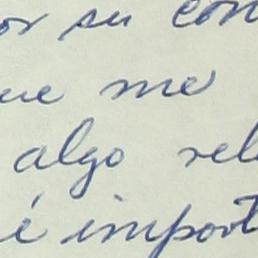 or su con
ue me
algo rel
i import